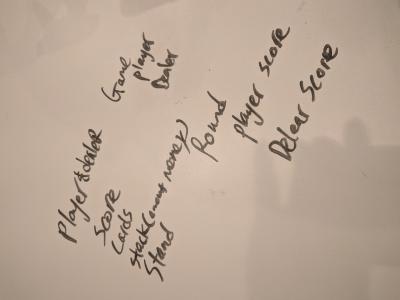 Game
player
Dealer
Player & dealer
Score
Cards
stack (
Stand
Round
player score
Delear Score